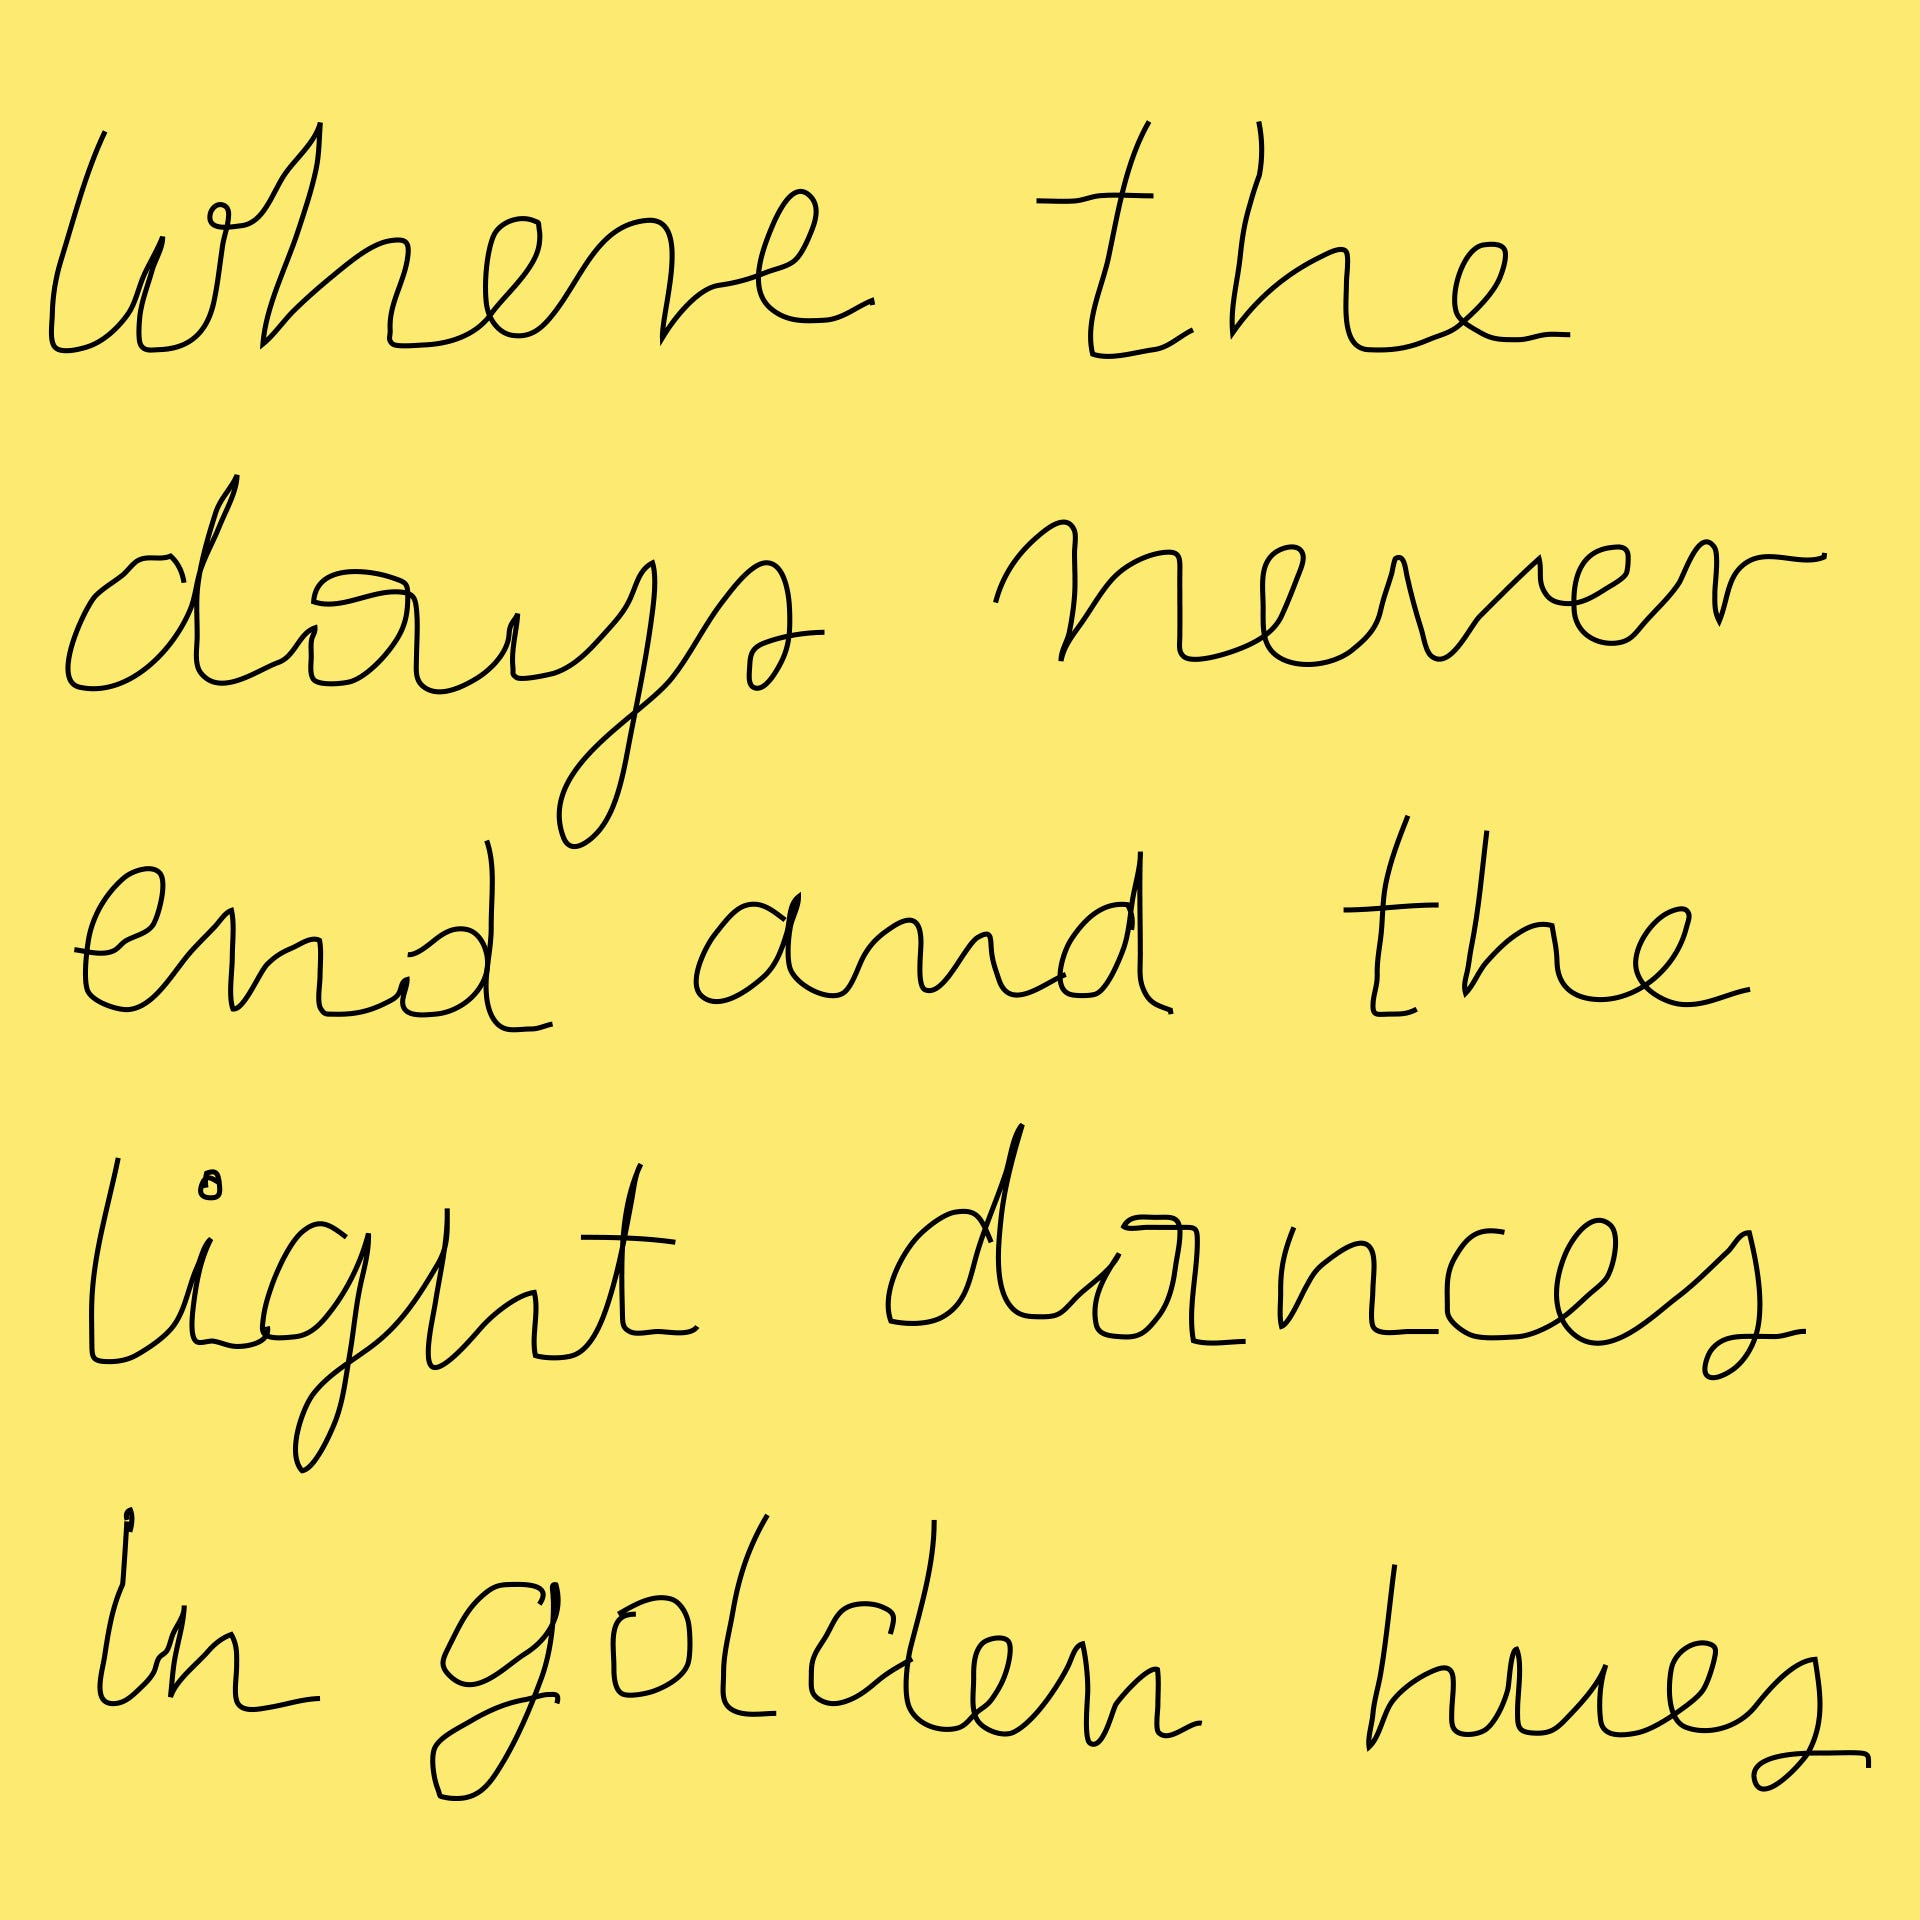 Where the
days never
end and the
light dances
In golden hues